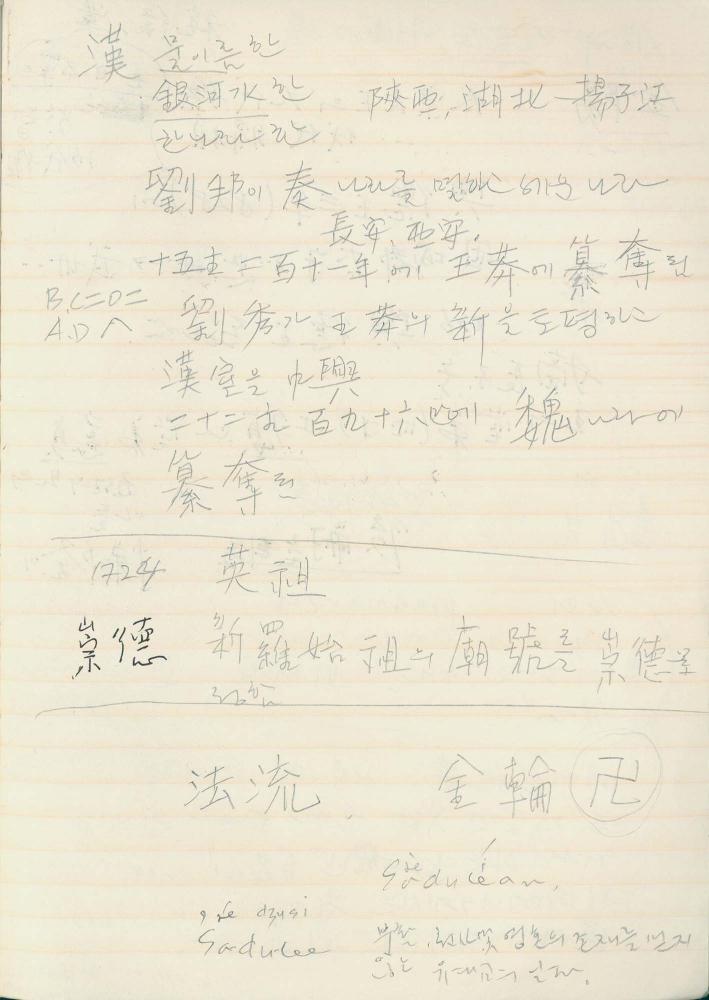 漢 물이름 한
銀河水 한 陝西, 湖北 - 揚子江
한나라 한
劉邦이 秦나라를 멸하고 세운 나라
長安 西安.
十五主 二百十一年에 王莽에 簒奪된
B.C 二〇二
A.D 八 劉秀가 王莽의 新을 토평하고
漢室을 中興
二十二 百九十六년에 魏나라에
簒奪된
1724 英祖
崇德 新羅始祖의 廟號를 崇德로
法流. 金輪 卍
Saducean,
Saducee 부활, 천사 및 영혼의 존재를 믿지
않는 유대교의 일파.